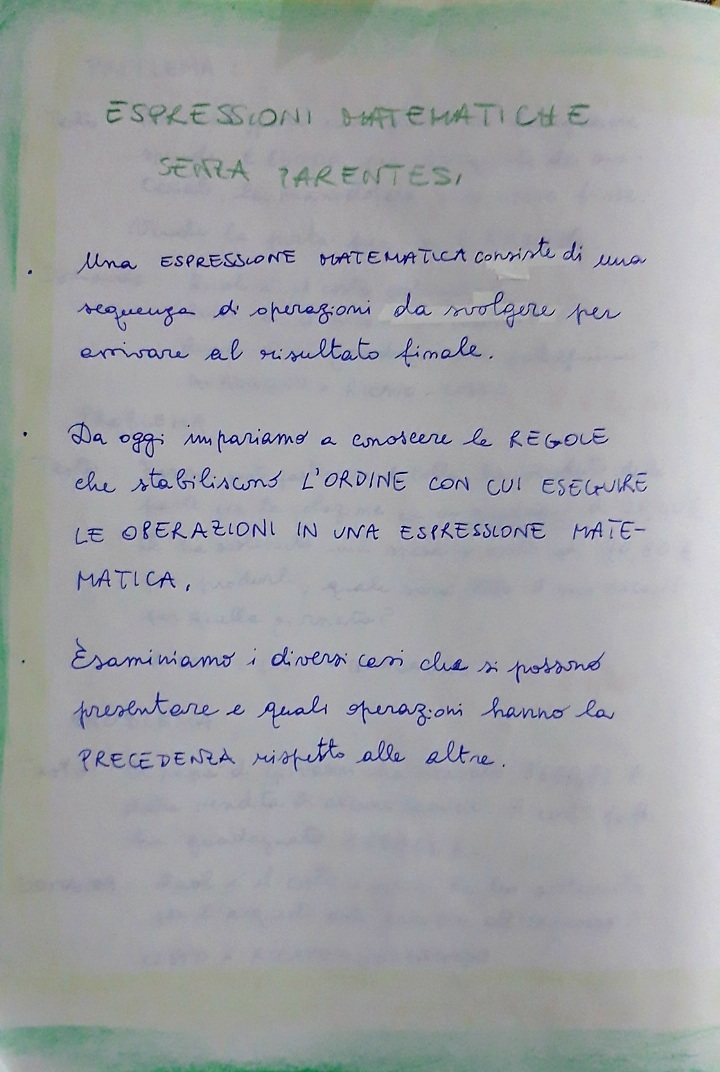 ESPRESSIONI MATEMATICHE
SENZA PARENTESI
. Una ESPRESSIONE MATEMATICA consiste di una
sequenza di operazioni da svolgere per
arrivare al risultato finale.
. Da oggi impariamo a conoscere le REGOLE
che stabiliscono L'ORDINE CON CUI ESEGUIRE
LE OPERAZIONI IN UNA ESPRESSIONE MATE-
MATICA.
. Esaminiamo i diversi casi che si possono
presentare e quali operazioni hanno la
PRECEDENZA rispetto alle altre.